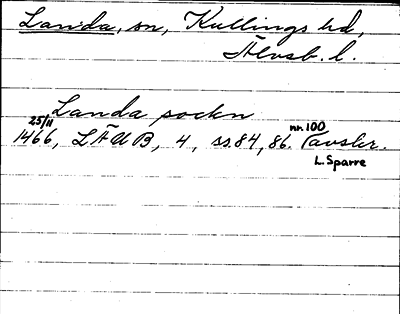 Landa, sn, Kullings hd,
Älvsb. l.
Landa sockn
25/11 nr. 100
1466, LÄUB, 4, ss. 84, 86. (avskr.
L. Sparre